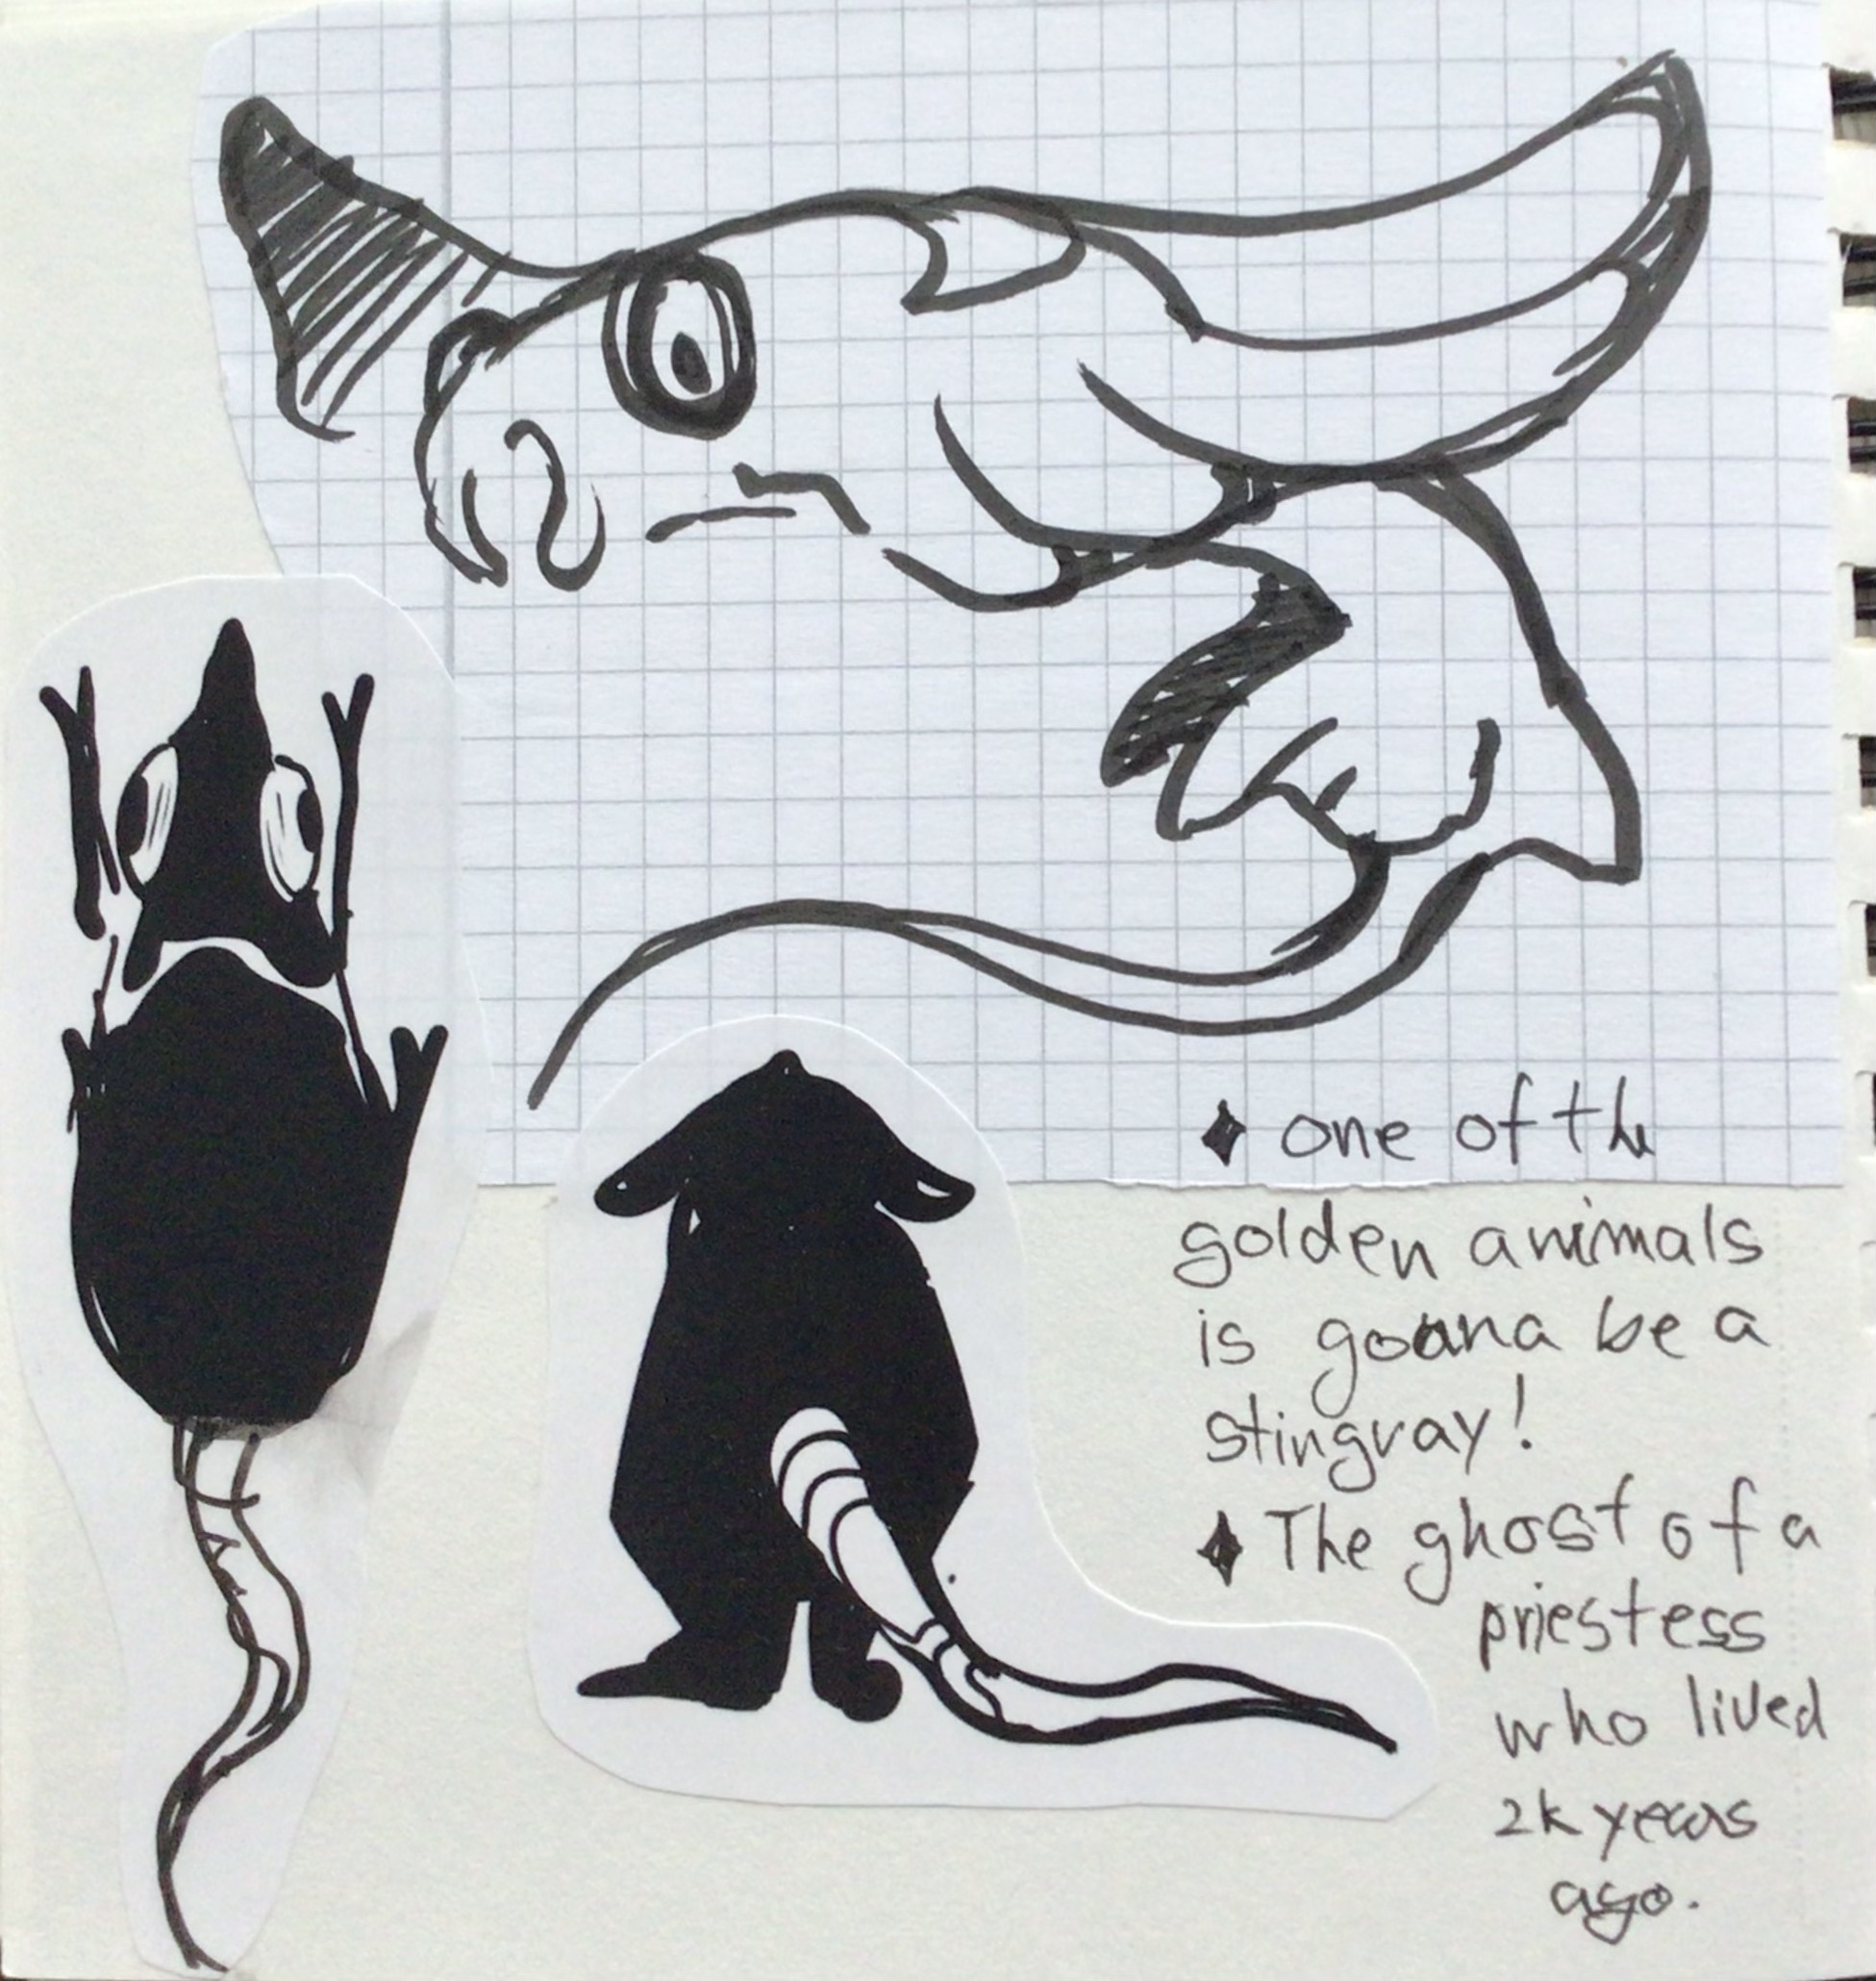 ♦ one of the
golden animals
is goanna be a
stingray!
♦ The ghost of a
priestess
who lived
2k years
ago.